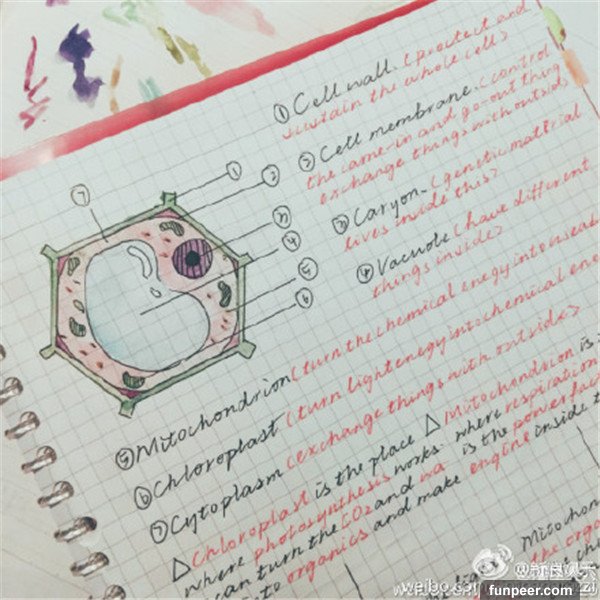 ① Cell wall. (protect and
sustain the whole cell)
② Cell membrane. (control
the came-in and go-out thing
exchange things with outside
③ Caryon. (genetic material
lives inside this)
④ Vacuole (have different
things inside)
⑤ Mitochondrion (turn the chemical enegy into useab
⑥ Chloroplast (turn light enegy into chemical ene
⑦ Cytoplasm (exchange things with outside)
△ Chloroplast is the place
where photosynthesis works.
can turn the CO2 and wa
into organics and make
△ Mitochondrion is
where respiration
is the power fact
engine inside t
Mitochon
the orga
the che
①
②
③
④
⑤
⑥
⑦
weibo.com
funpeer.com